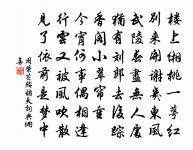 樓上緗桃一萼紅
別來開謝幾東風
武陵春盡無人處
猶有劉郎去後蹤
香閣小翠簾重
今宵何事偶相逢
行雲又被風吹散
見了依前是夢中
周紫芝